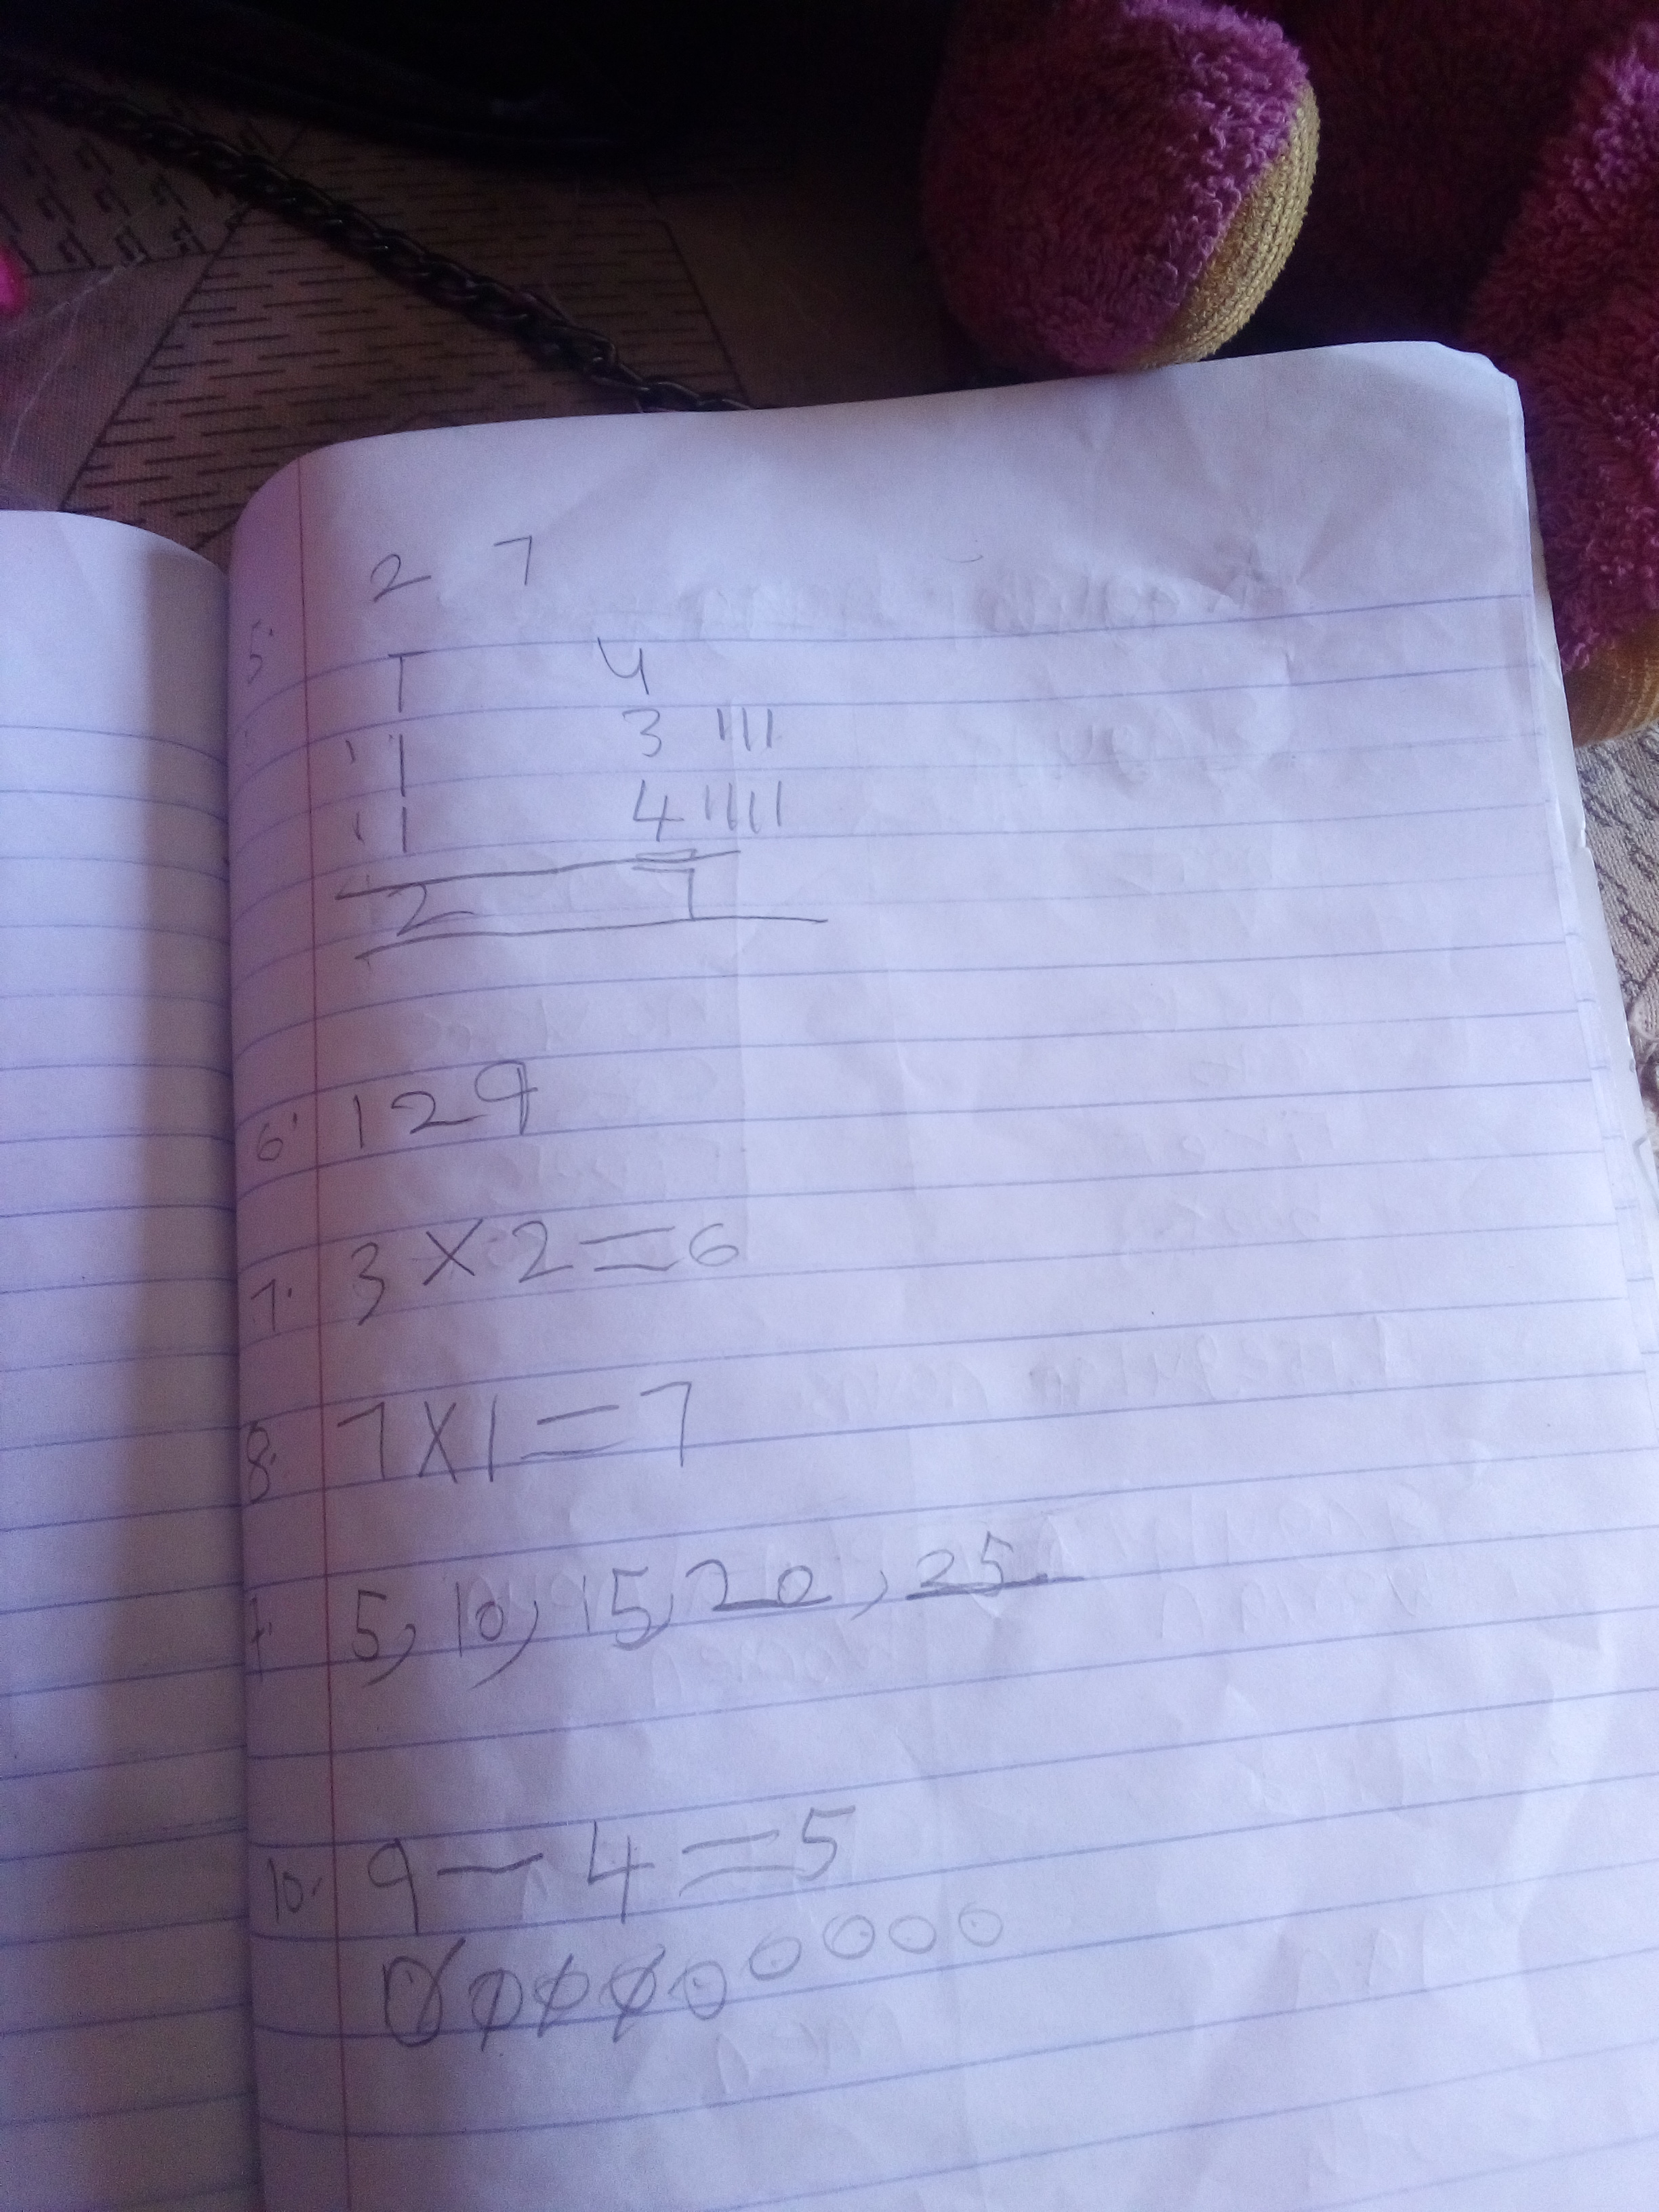 2 7
5. T U
1 1 3 ||||
1 1 4 ||||
2 7
6. 129
7. 3 x 2 = 6
8. 7 x 1 = 7
5, 10, 15, 20, 25
10. 9 - 4 = 5